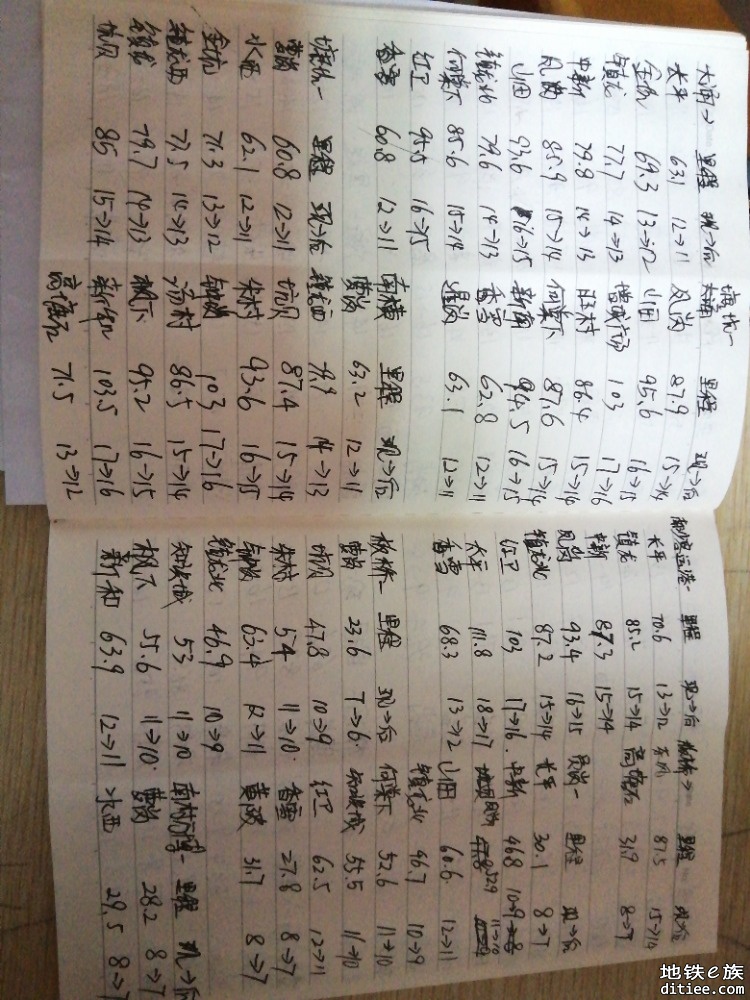 大涌→ 里程 现→后
太平 63.1 12→11
金坑 69.3 13→12
镇龙 77.7 14→13
中新 79.8 14→13
凤岗 85.9 15→14
山田 93.6 16→15
镇龙北 79.6 14→13
何棠下 85.6 15→14
红卫 95.5 16→15
香雪 60.8 12→11
塘坑一 里程 现→后
萝岗 60.8 12→11
水西 62.1 12→11
金坑 71.3 13→12
镇龙西 77.5 14→13
镇龙 79.7 14→13
坑贝 85 15→14
塘坑一 里程 现→后
凤岗 87.9 15→14
山田 95.6 16→15
增城广场 103 17→16
旺村 86.4 15→14
何棠下 87.6 15→14
新南 94.5 16→15
香雪 62.8 12→11
暹岗 63.1 12→11
南横 里程 现→后
萝岗 63.2 12→11
镇龙西 79.9 14→13
坑贝 87.4 15→14
朱村 93.6 16→15
钟岗 103 17→16
汤村 86.5 15→14
枫下 95.2 16→15
新和 103.5 17→16
高塘石 71.5 13→12
里程 现→后
太平 70.6 13→12
镇龙 85.2 15→14
中新 87.3 15→14
凤岗 93.4 16→15
镇龙北 87.2 15→14
红卫 103 17→16
太平 111.8 18→17
香雪 68.3 13→12
板桥一 里程 现→后
萝岗 23.6 7→6
坑贝 47.8 10→9
朱村 54 11→10
钟岗 63.4 12→11
镇龙北 46.9 10→9
知识城 53 11→10
枫下 55.6 11→10
新和 63.9 12→11
板桥→ 里程 现后
87.5 15→14
高塘石 31.9 8→7
员岗一 里程 现→后
太平 30.1 8→7
中新 46.8 10→9
凤岗 52.9 11→10
山田 60.6 12→11
镇龙北 46.7 10→9
何棠下 52.6 11→10
知识城 55.5 11→10
红卫 62.5 12→11
香雪 27.8 8→7
黄陂 31.7 8→7
南村万博一 里程 现→后
萝岗 28.2 8→7
水西 29.5 8→7
地铁e族
ditiee.com